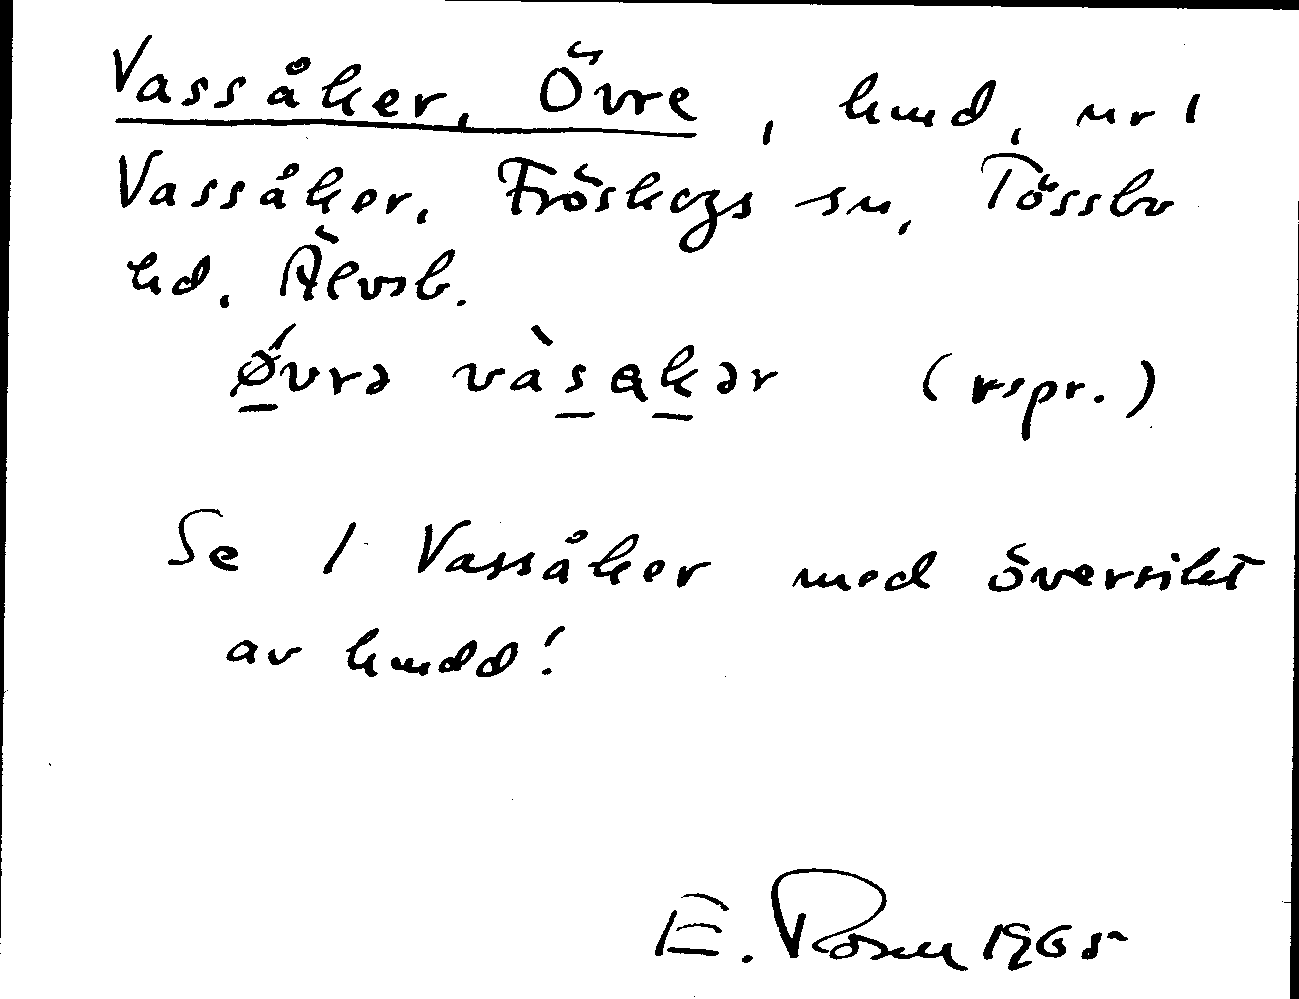 Vassåker, Övre, hmd, nr 1
Vassåker, Fröskogs sn, Tössbo
hd, Älvsb.
ǿvrə vàsakər (rspr.)
Se 1 Vassåker med översikt
av hmdd!
E. Rosén 1965